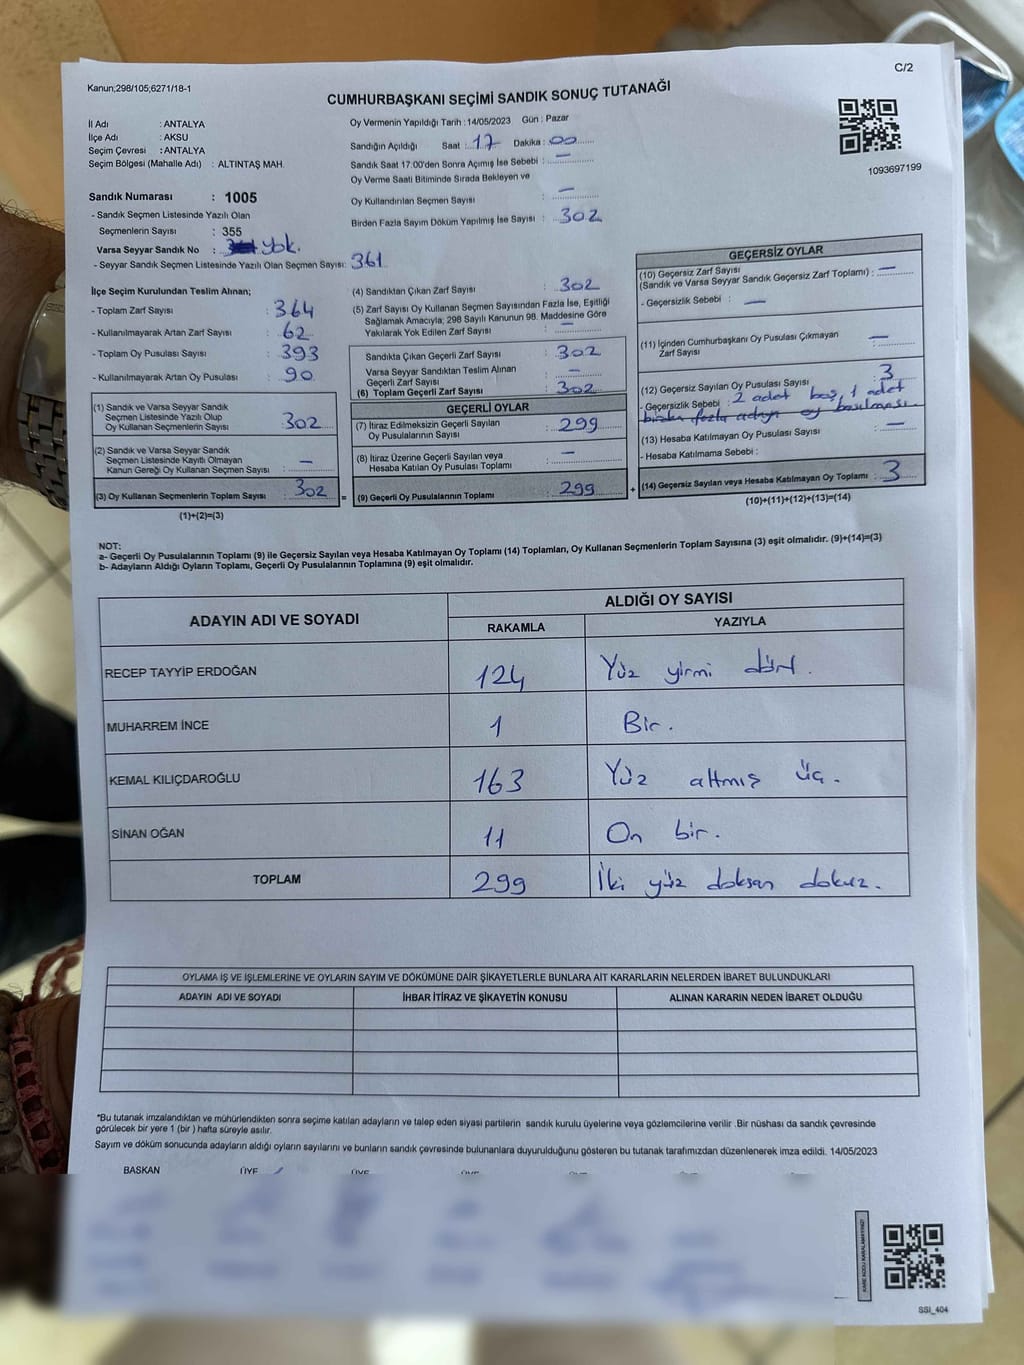 Kanun;298/105;6271/18-1
C/2
CUMHURBAŞKANI SEÇİMİ SANDIK SONUÇ TUTANAĞI
1093697199
İl Adı : ANTALYA
İlçe Adı : AKSU
Seçim Çevresi : ANTALYA
Seçim Bölgesi (Mahalle Adı) : ALTINTAŞ MAH.
Sandık Numarası : 1005
- Sandık Seçmen Listesinde Yazılı Olan
Seçmenlerin Sayısı : 355
Varsa Seyyar Sandık No : Yok.
- Seyyar Sandık Seçmen Listesinde Yazılı Olan Seçmen Sayısı: 361
Oy Vermenin Yapıldığı Tarih :14/05/2023 Gün : Pazar
Sandığın Açıldığı Saat : 17 Dakika : 00
Sandık Saat 17.00'den Sonra Açımış İse Sebebi : —
Oy Verme Saati Bitiminde Sırada Bekleyen ve
Oy Kullandırılan Seçmen Sayısı : —
Birden Fazla Sayım Döküm Yapılmış İse Sayısı : 302
İlçe Seçim Kurulundan Teslim Alınan;
- Toplam Zarf Sayısı : 364
- Kullanılmayarak Artan Zarf Sayısı : 62
- Toplam Oy Pusulası Sayısı : 393
- Kullanılmayarak Artan Oy Pusulası : 90
(1) Sandık ve Varsa Seyyar Sandık
Seçmen Listesinde Yazılı Olup
Oy Kullanan Seçmenlerin Sayısı : 302
(2) Sandık ve Varsa Seyyar Sandık
Seçmen Listesinde Kayıtlı Olmayan
Kanun Gereği Oy Kullanan Seçmen Sayısı : —
(3) Oy Kullanan Seçmenlerin Toplam Sayısı : 302 =
(1)+(2)=(3)
(4) Sandıktan Çıkan Zarf Sayısı : 302
(5) Zarf Sayısı Oy Kullanan Seçmen Sayısından Fazla İse, Eşitliği
Sağlamak Amacıyla; 298 Sayılı Kanunun 98. Maddesine Göre
Yakılarak Yok Edilen Zarf Sayısı : —
Sandıkta Çıkan Geçerli Zarf Sayısı : 302
Varsa Seyyar Sandıktan Teslim Alınan
Geçerli Zarf Sayısı : —
(6) Toplam Geçerli Zarf Sayısı : 302
GEÇERLİ OYLAR
(7) İtiraz Edilmeksizin Geçerli Sayılan
Oy Pusulalarının Sayısı : 299
(8) İtiraz Üzerine Geçerli Sayılan veya
Hesaba Katılan Oy Pusulası Toplamı : —
(9) Geçerli Oy Pusulalarının Toplamı : 299 +
GEÇERSİZ OYLAR
(10) Geçersiz Zarf Sayısı
(Sandık ve Varsa Seyyar Sandık Geçersiz Zarf Toplamı) : —
- Geçersizlik Sebebi : —
(11) İçinden Cumhurbaşkanı Oy Pusulası Çıkmayan
Zarf Sayısı : —
(12) Geçersiz Sayılan Oy Pusulası Sayısı : 3
- Geçersizlik Sebebi : 2 adet boş, 1 adet
birden fazla adaya oy basılması
(13) Hesaba Katılmayan Oy Pusulası Sayısı : —
- Hesaba Katılmama Sebebi :
(14) Geçersiz Sayılan veya Hesaba Katılmayan Oy Toplamı : 3
(10)+(11)+(12)+(13)=(14)
NOT:
a- Geçerli Oy Pusulalarının Toplamı (9) ile Geçersiz Sayılan veya Hesaba Katılmayan Oy Toplamı (14) Toplamları, Oy Kullanan Seçmenlerin Toplam Sayısına (3) eşit olmalıdır. (9)+(14)=(3)
b- Adayların Aldığı Oyların Toplamı, Geçerli Oy Pusulalarının Toplamına (9) eşit olmalıdır.
ADAYIN ADI VE SOYADI ALDIĞI OY SAYISI
RAKAMLA YAZIYLA
RECEP TAYYİP ERDOĞAN 124 Yüz yirmi dört.
MUHARREM İNCE 1 Bir.
KEMAL KILIÇDAROĞLU 163 Yüz altmış üç.
SİNAN OĞAN 11 On bir.
TOPLAM 299 İki yüz doksan dokuz.
OYLAMA İŞ VE İŞLEMLERİNE VE OYLARIN SAYIM VE DÖKÜMÜNE DAİR ŞİKAYETLERLE BUNLARA AİT KARARLARIN NELERDEN İBARET BULUNDUKLARI
ADAYIN ADI VE SOYADI İHBAR İTİRAZ VE ŞİKAYETİN KONUSU ALINAN KARARIN NEDEN İBARET OLDUĞU
*Bu tutanak imzalandıktan ve mühürlendikten sonra seçime katılan adayların ve talep eden siyasi partilerin sandık kurulu üyelerine veya gözlemcilerine verilir .Bir nüshası da sandık çevresinde
görülecek bir yere 1 (bir ) hafta süreyle asılır.
Sayım ve döküm sonucunda adayların aldığı oyların sayılarını ve bunların sandık çevresinde bulunanlara duyurulduğunu gösteren bu tutanak tarafımızdan düzenlenerek imza edildi. 14/05/2023
BAŞKAN ÜYE ÜYE
KARE KODU KARALAMAYINIZ!
SSI_404